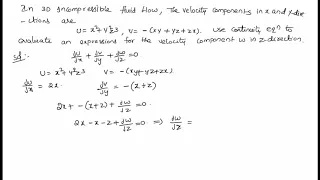 In 3D Incompressible fluid flow, The velocity components in x and y-dire
-ctions are
U = x²+y²z³, v = -(xy+yz+zx). use continuity eqⁿ to
evaluate an expressions for the velocity component w in z-direction.
du/dx + dv/dy + dw/dz = 0
U = x²+y²z³ V = -(xy+yz+zx).
du/dx = 2x dv/dy = -(x+z)
2x + -(x+z) + dw/dz = 0
2x - x - z + dw/dz = 0 ⇒ dw/dz =